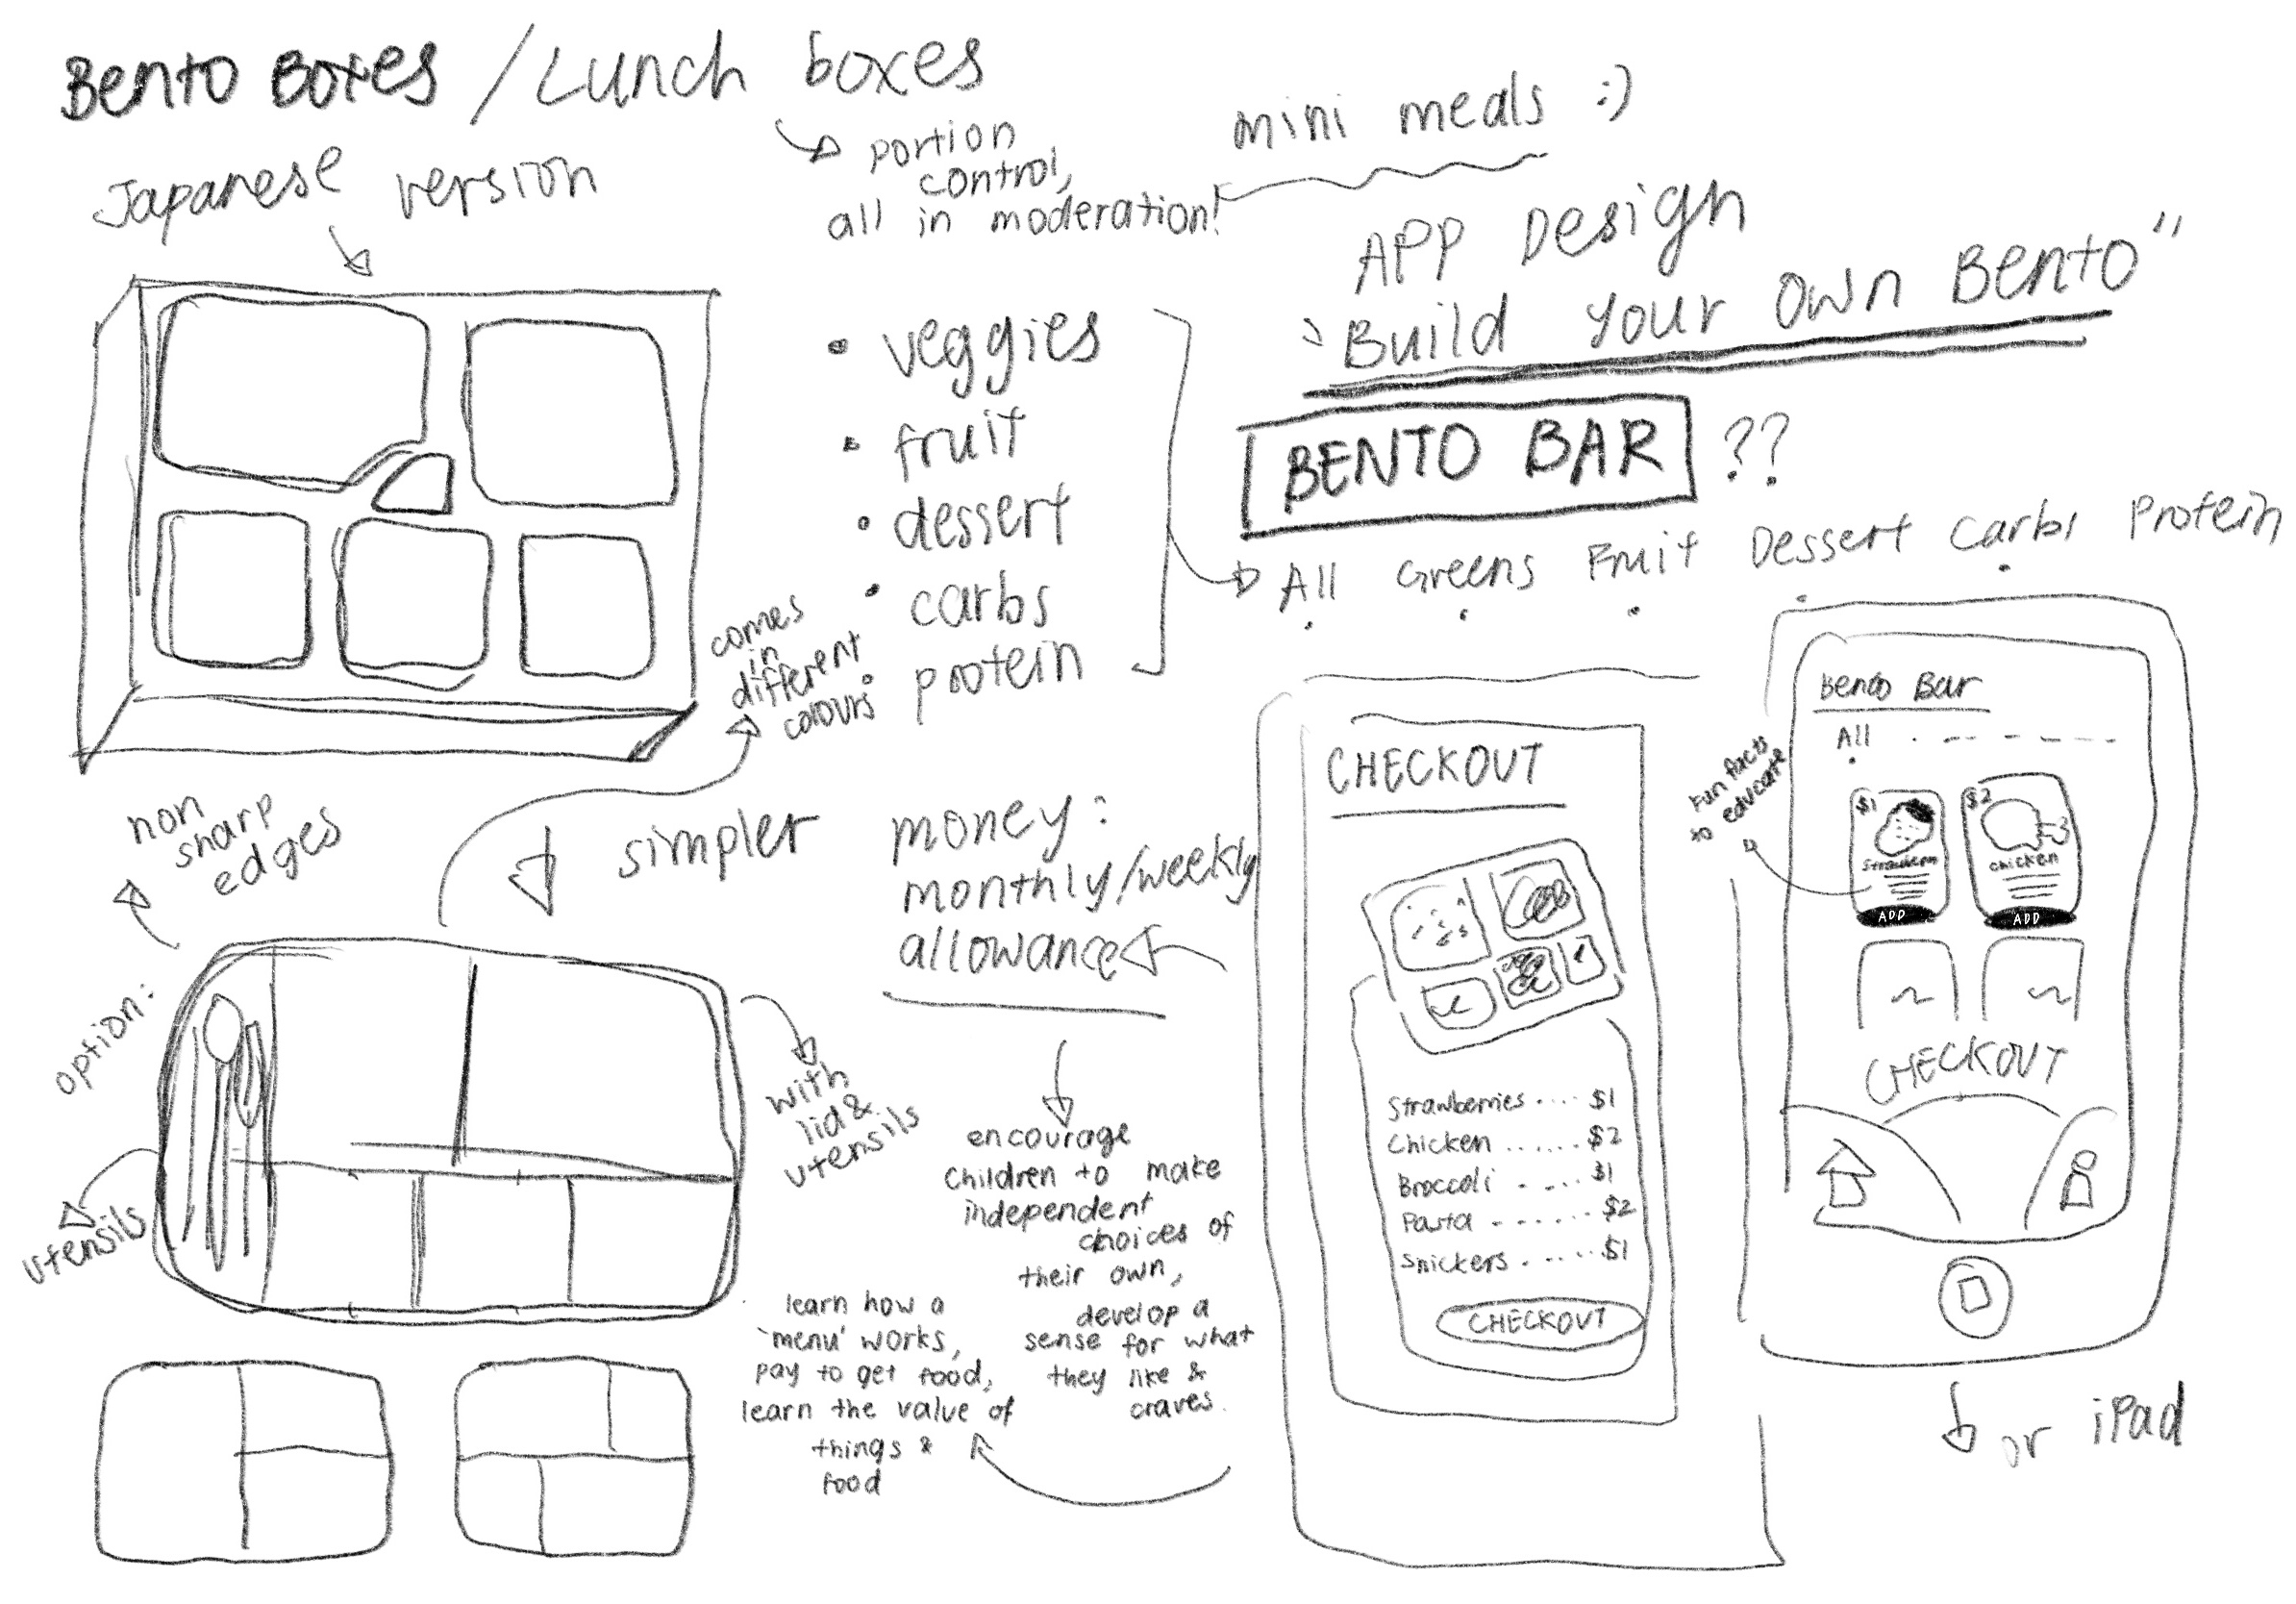 Bento Boxes / Lunch boxes
Japanese version
portion
control,
all in moderation!
mini meals :)
APP Design
"Build Your Own Bento"
BENTO BAR ??
• veggies
• fruit
• dessert
• carbs
• protein
All Greens Fruit Dessert Carbs Protein
comes
in
different
colours
non
sharp
edges
simpler
option:
utensils
with
lid &
utensils
money:
monthly/weekly
allowance
encourage
children to make
independent
choices of
their own,
develop a
sense for what
they like &
craves.
learn how a
'menu' works,
pay to get food,
learn the value of
things &
food
CHECKOUT
Strawberries .... $1
Chicken ...... $2
Broccoli .... $1
Pasta ...... $2
Snickers ..... $1
CHECKOUT
Fun facts
to educate
Bento Bar
All
$1
Strawberri
ADD
$2
chicken
ADD
CHECKOUT
or iPad